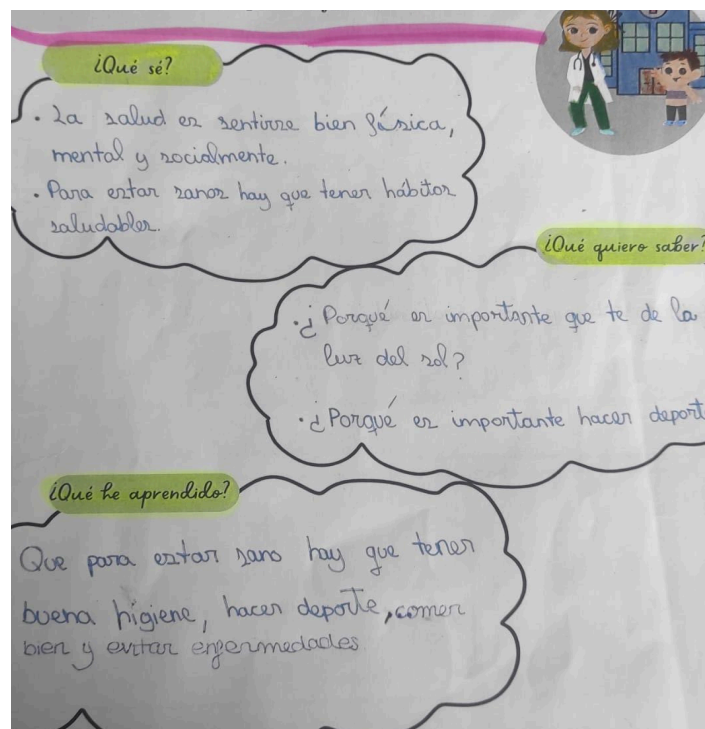 ¿Qué sé?
. La salud es sentirse bien física,
mental y socialmente.
. Para estar sanos hay que tener hábitos
saludables.
¿Qué quiero saber?
. ¿Porqué es importante que te de la
luz del sol?
. ¿Porqué es importante hacer deport
¿Qué he aprendido?
Que para estar sano hay que tener
buena higiene, hacer deporte, comer
bien y evitar enfermedades